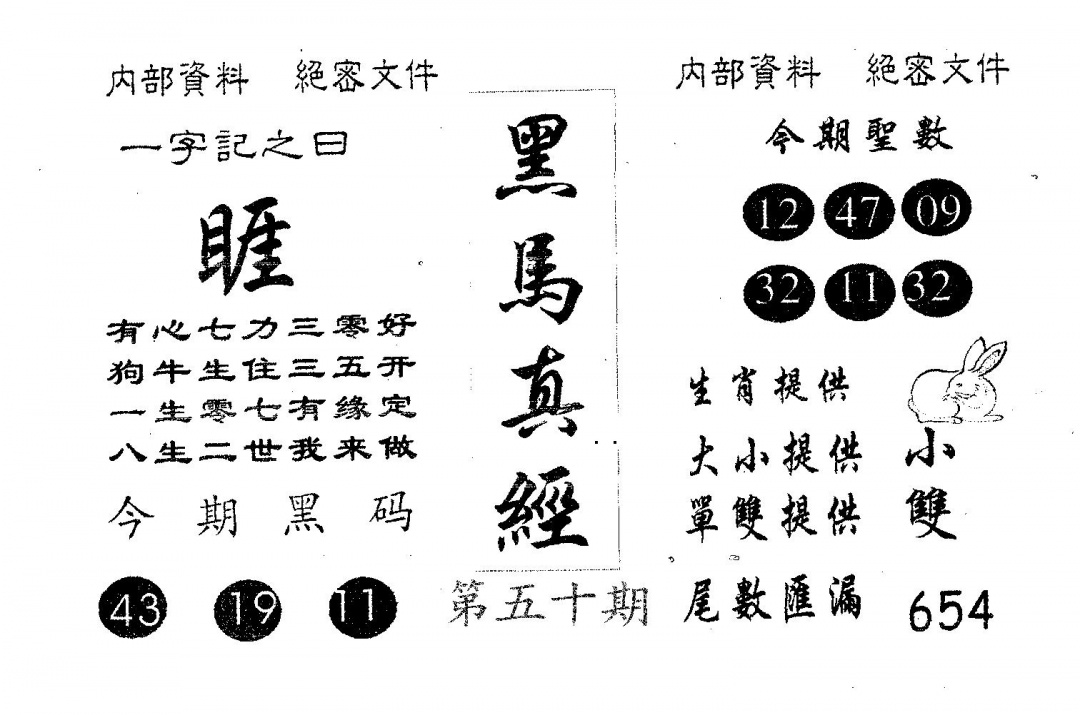 内部資料 絕密文件
一字記之曰
睚
有心七力三零好
狗牛生住三五开
一生零七有缘定
八生二世我来做
今期黑码
43 19 11
黑馬真經
第五十期
内部資料 絕密文件
今期聖數
12 47 09
32 11 32
生肖提供
大小提供 小
單雙提供 雙
尾數匯漏 654